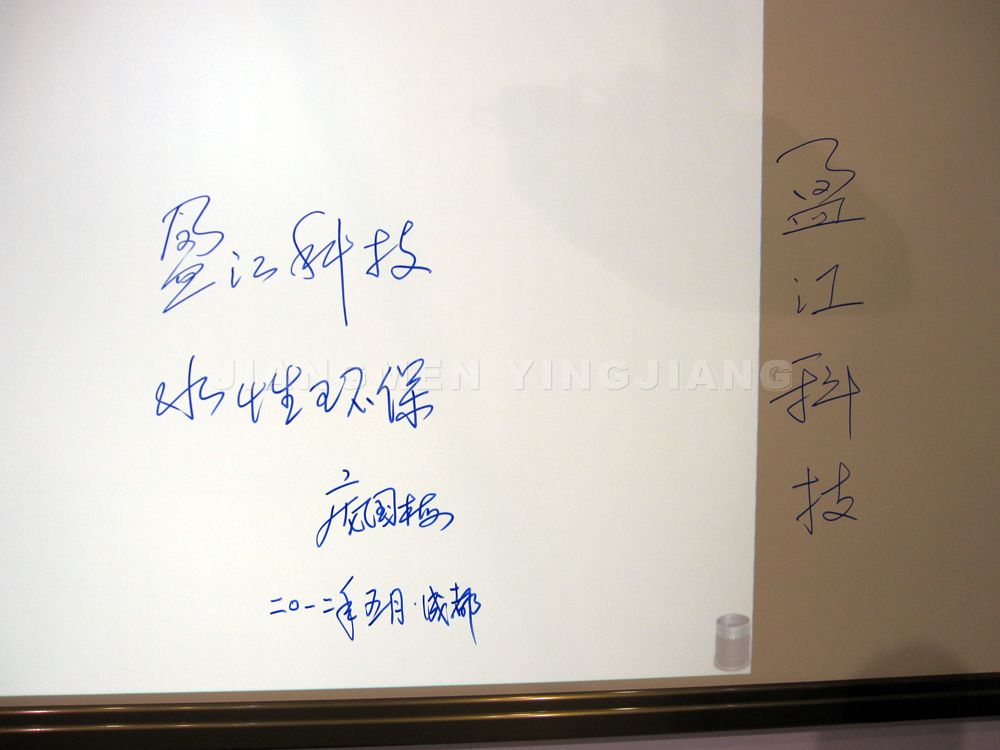 盈江科技
水性环保
二〇一二年五月·成都
盈江科技
JIANGMEN YINGJIANG